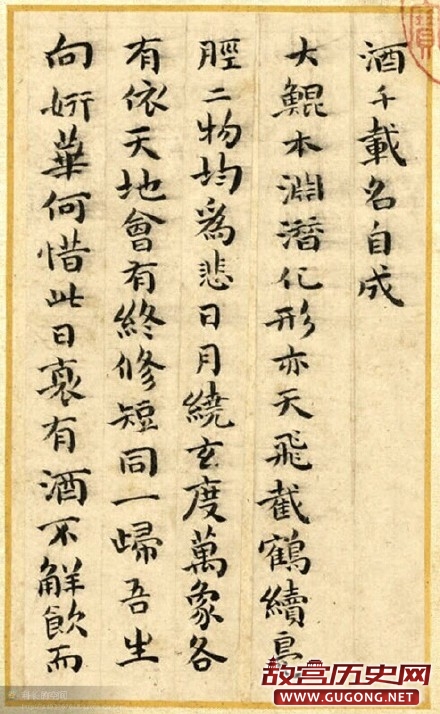 酒千載名自成
大鯤本淵潛化形亦天飛截鶴續鳧
脛二物均爲悲日月繞玄度萬象各
有依天地會有終修短同一歸吾生
向妍華何惜此日衰有酒不解飲而
寶
故宫历史网
WWW.GUGONG.NET